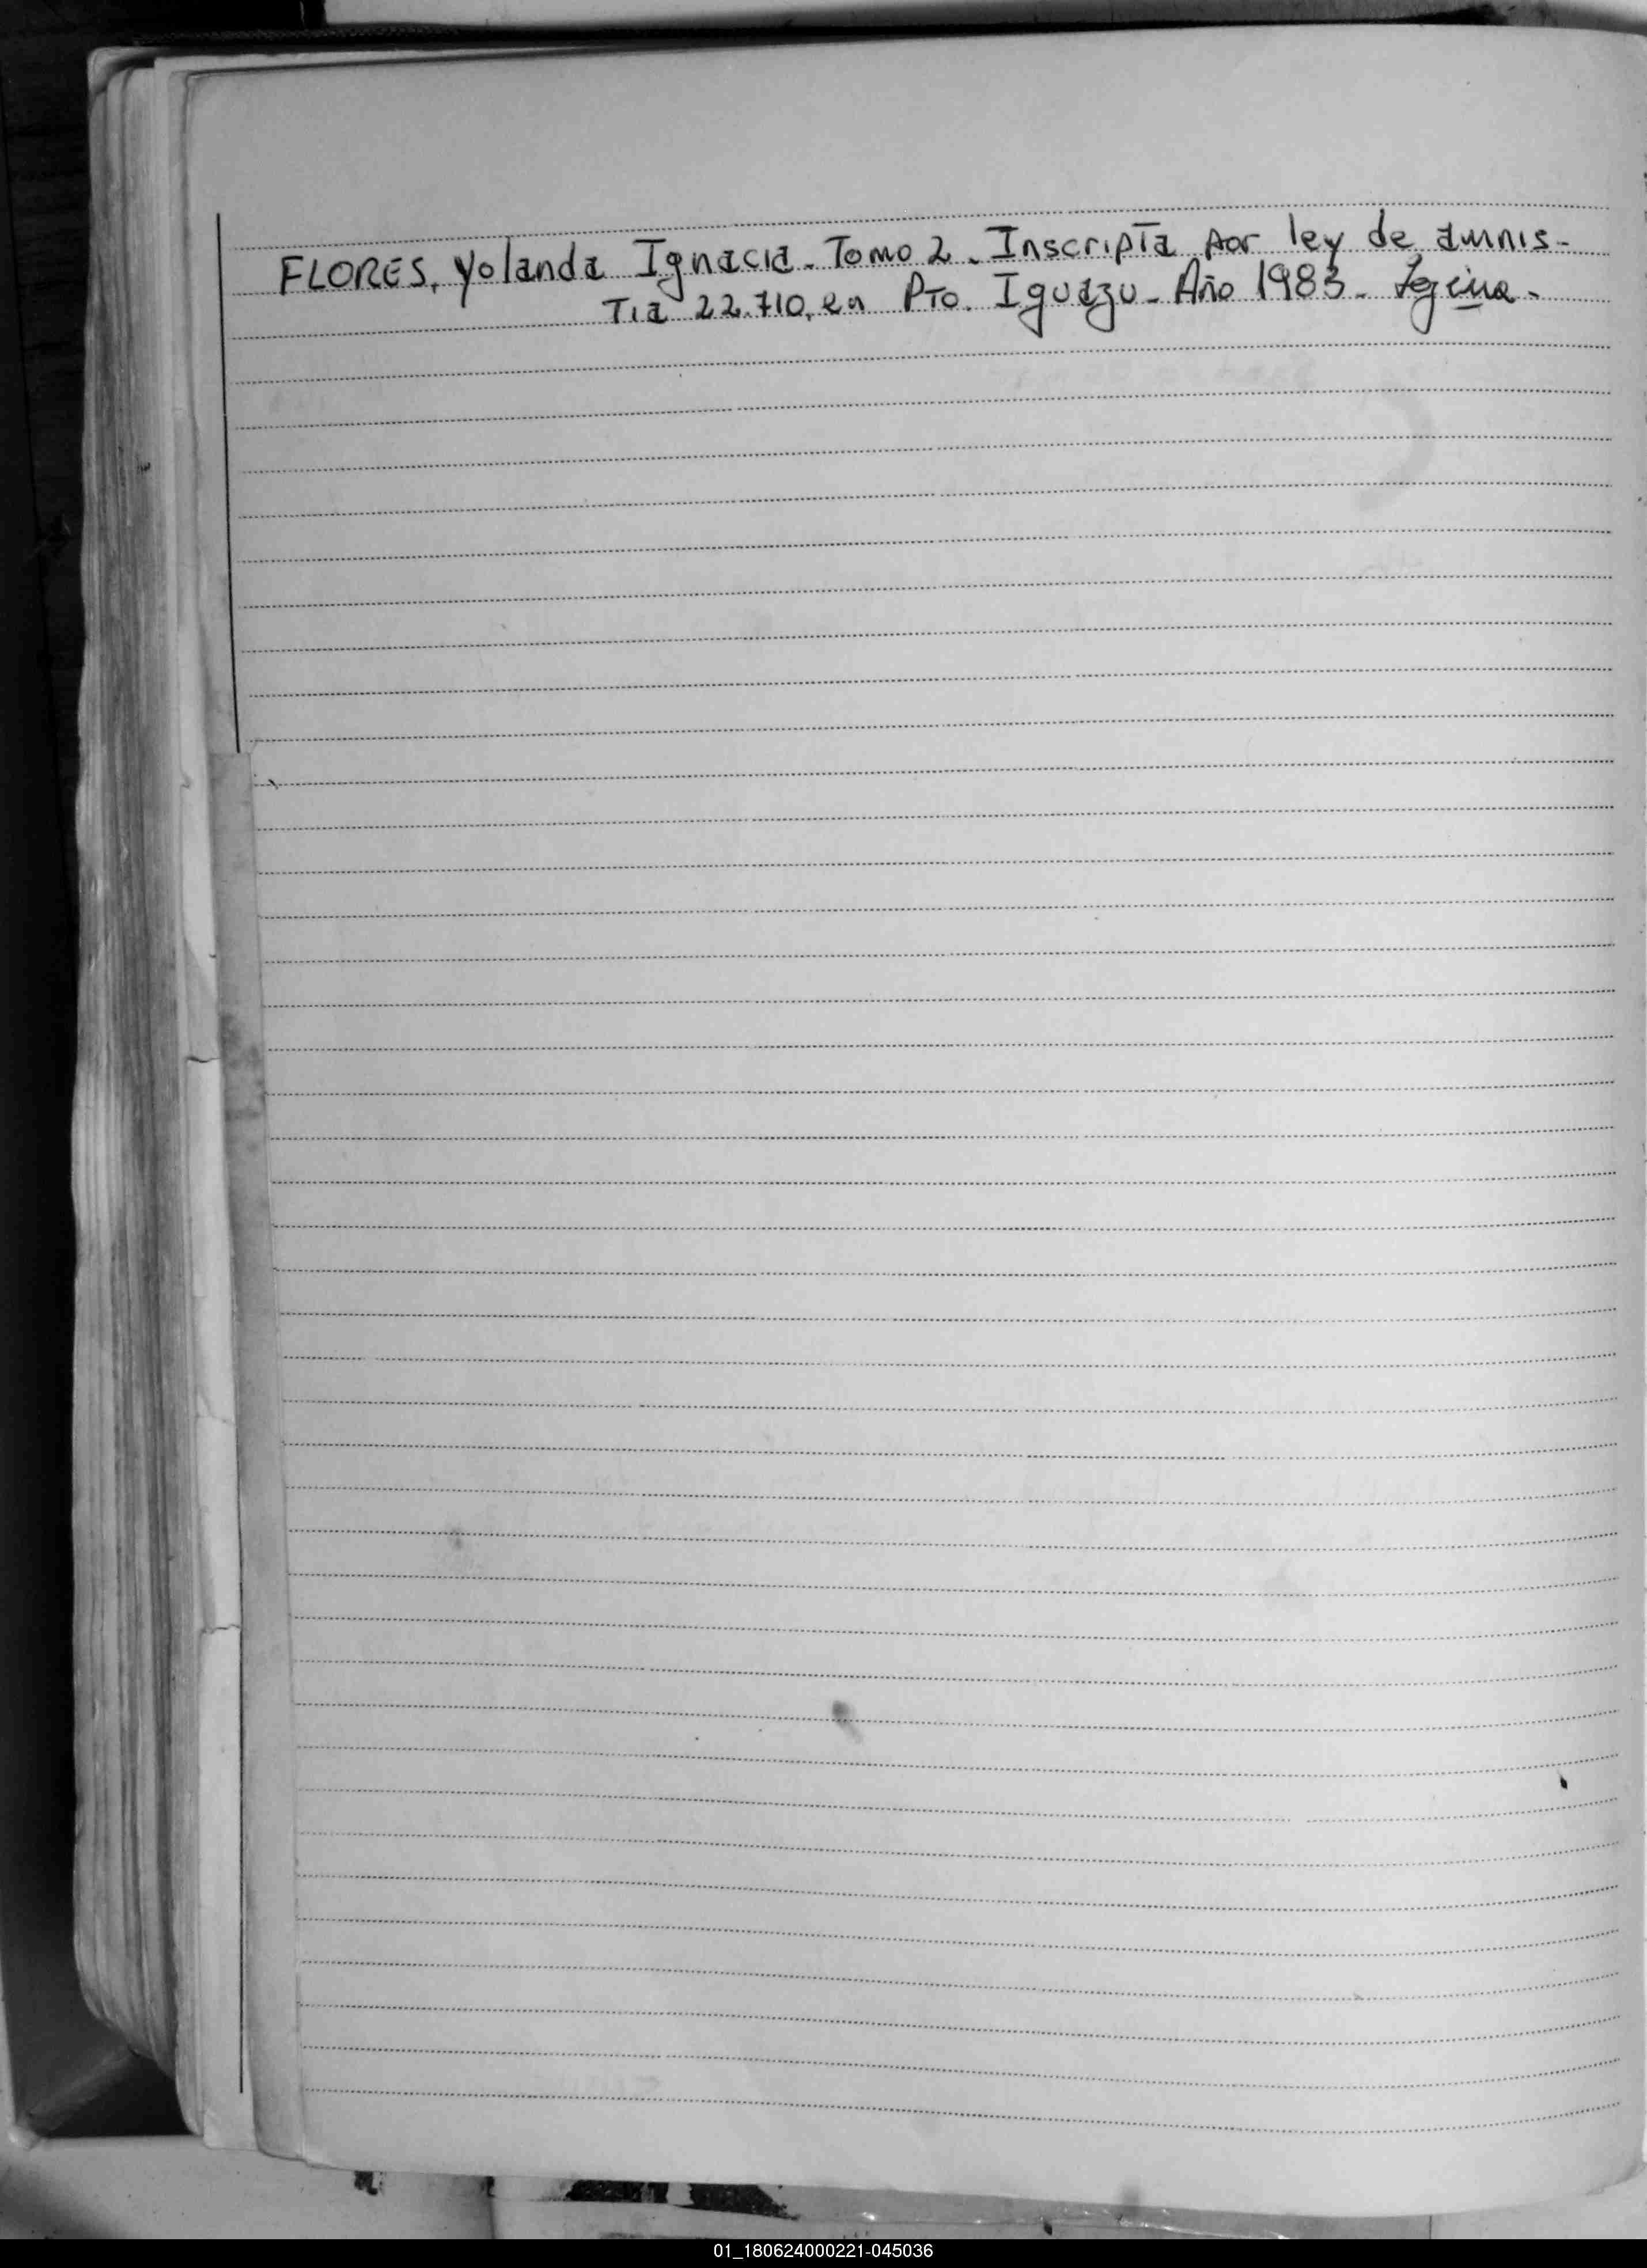 FLORES, Yolanda Ignacia. Tomo 2. Inscripta por ley de amnis-
Tia 22.710, en Pto. Iguazu. Año 1983.
01_180624000221-045036